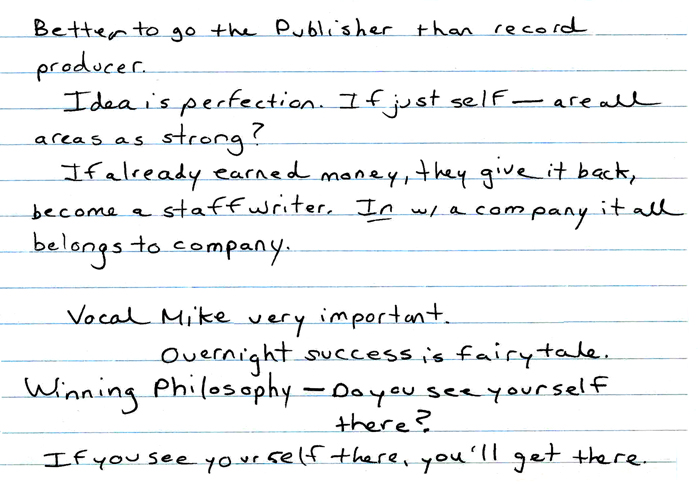 Better to go the Publisher than record
producer.
Idea is perfection. If just self — are all
areas as strong?
If already earned money, they give it back,
become a staff writer. In w/ a company it all
belongs to company.
Vocal Mike very important.
Overnight success is fairytale.
Winning Philosophy — Do you see yourself
there?
If you see yourself there, you'll get there.